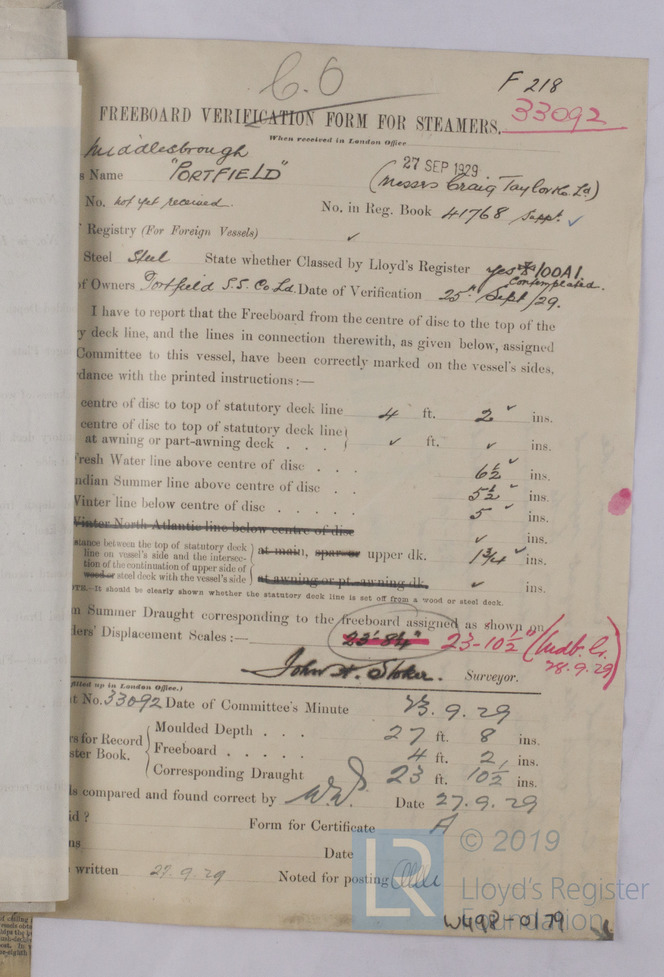 C.O
F 218
FREEBOARD VERIFICATION FORM FOR STEAMERS.
33092
When received in London Office
Middlesbrough
27 SEP 1929
s Name "PORTFIELD" (Messrs Craig Taylor & Co Ld)
No. not yet received. No. in Reg. Book 41768 Suppt. ✓
Registry (For Foreign Vessels) ✓
Steel Steel State whether Classed by Lloyd's Register yes 100A1. Contemplated.
of Owners Portfield S.S. Co Ld. Date of Verification 25th Sept/29.
I have to report that the Freeboard from the centre of disc to the top of the
y deck line, and the lines in connection therewith, as given below, assigned
Committee to this vessel, have been correctly marked on the vessel's sides,
rdance with the printed instructions :—
centre of disc to top of statutory deck line 4 ft. 2 ✓ ins.
centre of disc to top of statutory deck line
at awning or part-awning deck . . . ✓ ft. ✓ ins.
Fresh Water line above centre of disc . . . 6½ ✓ ins.
Indian Summer line above centre of disc . . 5½ ✓ ins.
Winter line below centre of disc . . . . . 5 ✓ ins.
Winter North Atlantic line below centre of disc ✓ ins.
stance between the top of statutory deck
line on vessel's side and the intersec-
tion of the continuation of upper side of
wood or steel deck with the vessel's side
at main, spar or upper dk. 1¾ ✓ ins.
at awning or pt.-awning dk. ✓ ins.
It should be clearly shown whether the statutory deck line is set off from a wood or steel deck.
m Summer Draught corresponding to the freeboard assigned as shown on
ders' Displacement Scales :— 23'-8¼" 23-10½" (Mdb. Lr. 28.9.29)
John H. Stoker. Surveyor.
filled up in London Office.)
t No. 33092 Date of Committee's Minute 23.9.29
rs for Record
ster Book.
Moulded Depth . . . 27 ft. 8 ins.
Freeboard . . . . . 4 ft. 2, ins.
Corresponding Draught 23 ft. 10½ ins.
ls compared and found correct by Date 27.9.29
id ? Form for Certificate A
ns Date
written 27.9.29 Noted for posting
LR
© 2019
Lloyd's Register
Foundation
W498-0179